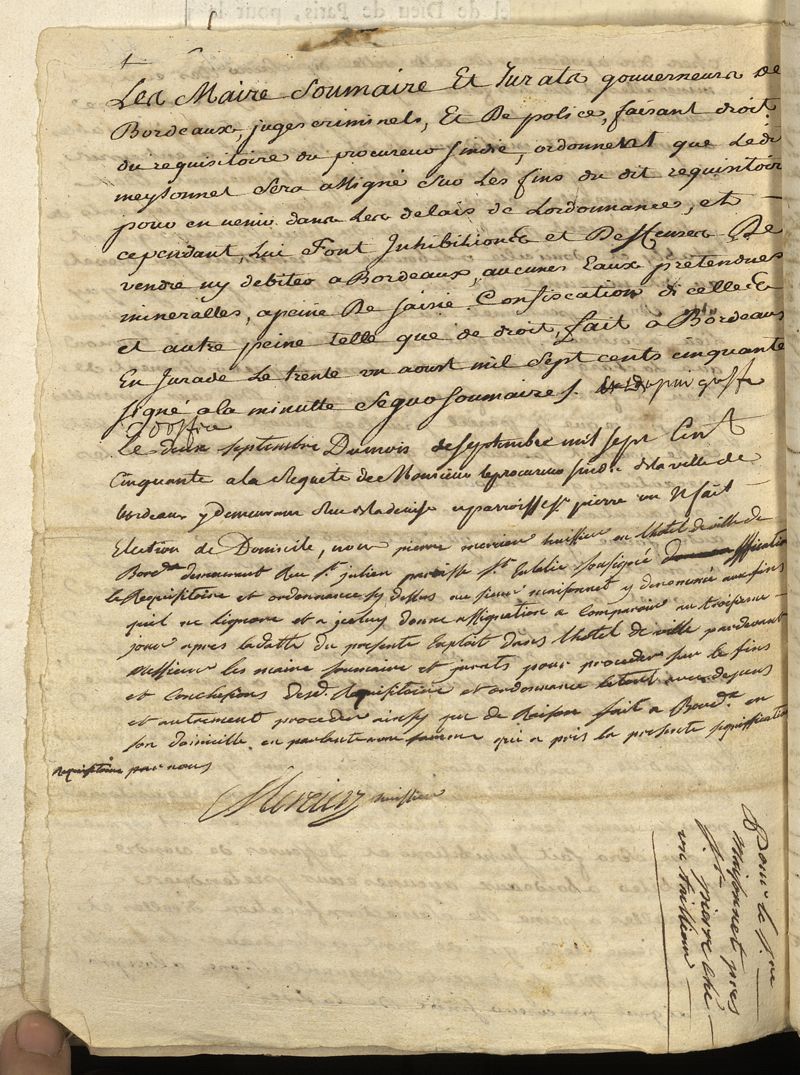 Les Maire Soumaire Et Jurats gouverneurs de
Bordeaux, juges criminels, Et De police, faisant droit
du requisitoire du procureur sindic, ordonnent que Ledit
meysonnet sera assigné sur Les fins du dit requisitoire
pour en venir dans Les delais de Lordonnance, et
cependant, Lui Font Inhibitions et Deffenses De
vendre ny debiter a Bordeaux, aucunes Eaux pretendues
mineralles, a peine De saisie Confiscation dicelles
et autre peine telle que de droit, fait à Bordeaux
En Jurade Le trente un aoust mil sept cents cinquante
signé a la minutte Segur Soumaire
d'office
Le deux septembre Dumois de septembre mil sept Cent
Cinquante a la Requete de Monsieur le procureur sindic de la ville de
bordeaux y demeurant Rue de la devise parroisse St pierre ou Il fait
Election de Domicile, nous pierre mercier huissier en lhotel de ville de
Bordx demeurant Rue St julien paroisse Ste Eulalie soussigné
le Requisitoire et ordonnance cy dessus au sieur maisonnet y denommé aux fins
quil ne lignore et a jceluy donne assignation a comparoir au troisieme
jour apres la datte du presente Exploit dans lhotel de ville pardevant
messieurs les maire soumaire et jurats pour proceder sur les fins
et Conclusions desd. Requisitoire et ordonnance avec depens
et autrement proceder ainsy que de Raison fait a Bordx en
son domicille en parlant a qui a pris la presente signiffication
Requisitoire par nous
Mercier huissier
Pour le sr
Maisonnet pres
St pierre ché
un tailleur